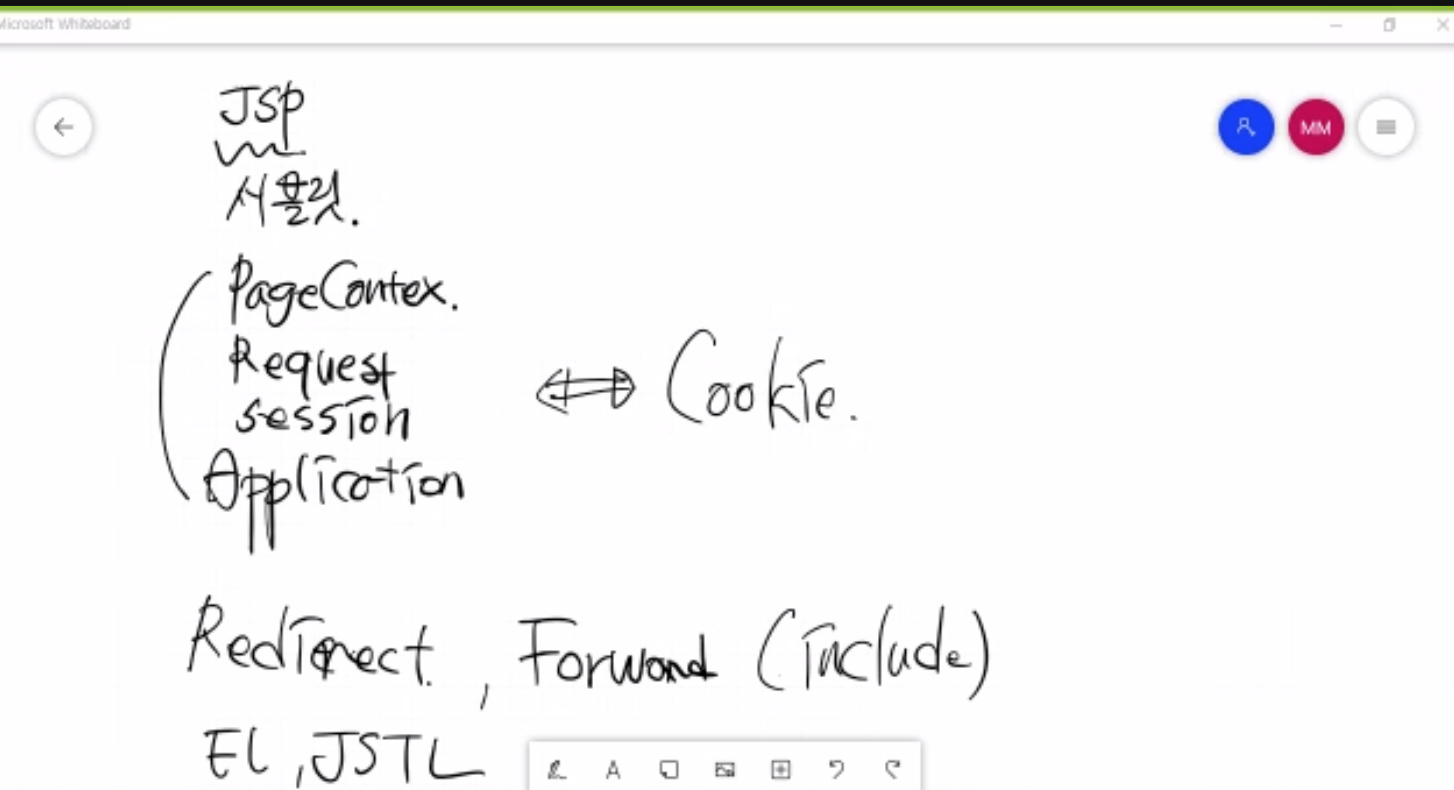 Microsoft Whiteboard
JSP
서블릿.
MM
PageContex.
Request
session
Application
⇔ Cookie.
Redirect, Forward (include)
EL, JSTL
A